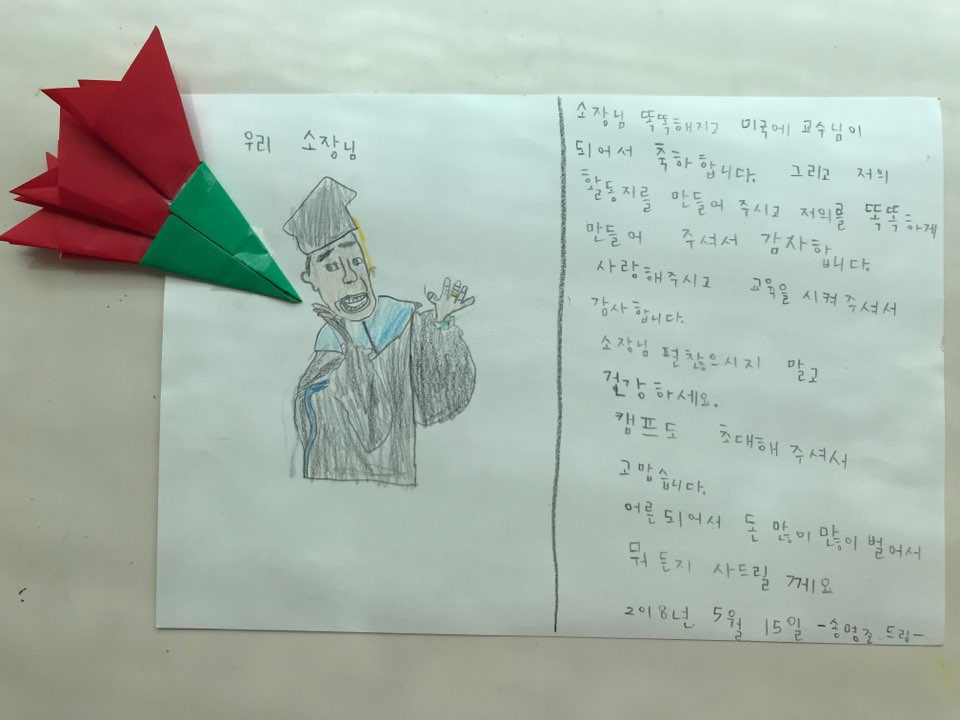 우리 소장님
소장님 똑똑해지고 미국에 교수님이
되어서 축하합니다. 그리고 저의
활동지를 만들어 주시고 저의를 똑똑하게
만들어 주셔서 감사합니다.
사랑해주시고 교육을 시켜주셔서
감사합니다.
소장님 편찮으시지 말고
건강하세요.
캠프도 초대해 주셔서
고맙습니다.
어른되어서 돈 많이 많이 벌어서
뭐든지 사드릴께요
2018년 5월 15일 -송명준 드림-